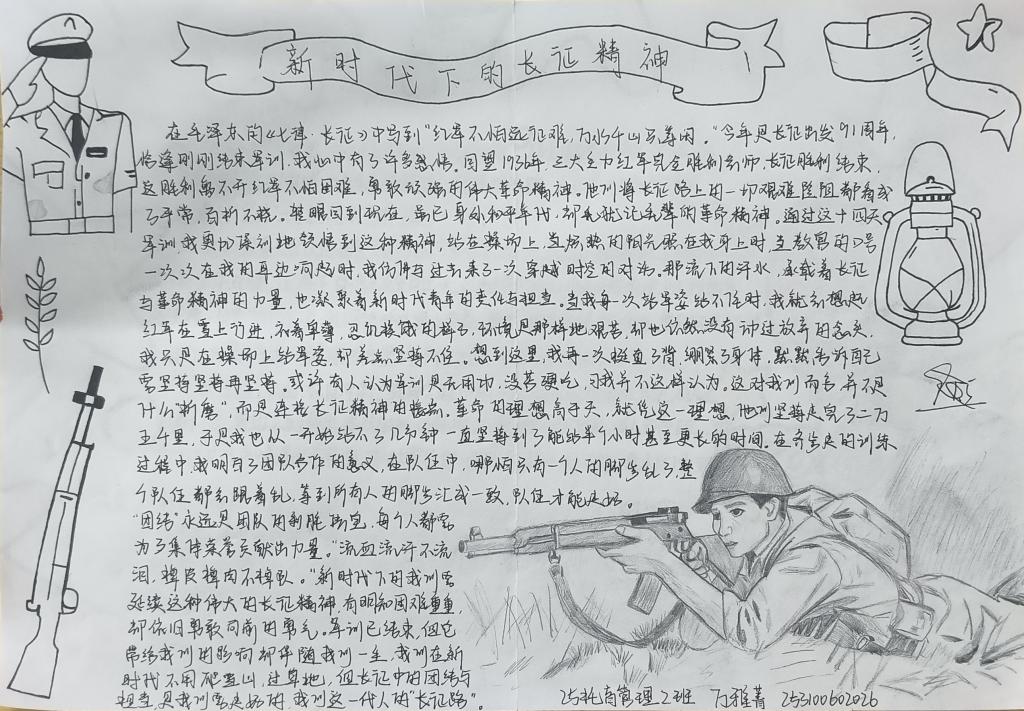 新时代下的长征精神
在毛泽东的《七律·长征》中写到“红军不怕远征难，万水千山只等闲。”今年是长征出发91周年，
恰逢刚刚结束军训，我心中有了许多感悟。回望1936年，三大主力红军完全胜利会师，长征胜利结束，
这胜利离不开红军不怕困难，勇敢顽强的伟大革命精神。他们将长征路上的一切艰难险阻都看成
了平常，百折不挠。转眼回到现在，虽已身处和平年代，却无法忘记先辈的革命精神。通过这十四天
军训，我更加深刻地领悟到这种精神，站在操场上，当炽热的阳光照在我身上时，当教官的口号
一次次在我的耳边响起时，我仿佛与过去来了一次穿越时空的对话。那流下的汗水，承载着长征
与革命精神的力量，也凝聚着新时代青年的责任与担当。当我每一次站军姿站不住时，我就会想起
红军在雪上行进，衣着单薄，忍饥挨饿的样子，环境是那样地艰苦，却也依然没有动过放弃的念头，
我只是在操场上站军姿，却差点坚持不住。想到这里，我再一次挺直了背，绷紧了身体，默默告诉自己
需坚持坚持再坚持。或许有人认为军训是无用功，没苦硬吃，可我并不这样认为。这对我们而言，并不是
什么“折磨”，而是连接长征精神的桥梁。革命的理想高于天，就凭这一理想，他们坚持走完了二万
五千里，于是我也从一开始站不了几分钟一直坚持到了能站半个小时甚至更长的时间。在齐步走的训练
过程中，我明白了团队合作的意义，在队伍中，哪怕只有一个人的脚步乱了，整
个队伍都会跟着乱，等到所有人的脚步汇成一致，队伍才能走好。
“团结”永远是团队的制胜法宝，每个人都需
为了集体荣誉贡献出力量。“流血流汗不流
泪，掉皮掉肉不掉队。”新时代下的我们需
延续这种伟大的长征精神，有明知困难重重，
却依旧勇敢向前的勇气。军训已结束，但它
带给我们的影响却伴随我们一生，我们在新
时代不用爬雪山，过草地，但长征中的团结与
担当，是我们需走好的，我们这一代人的“长征路”。
25托育管理2班 万雅菁 253100602026